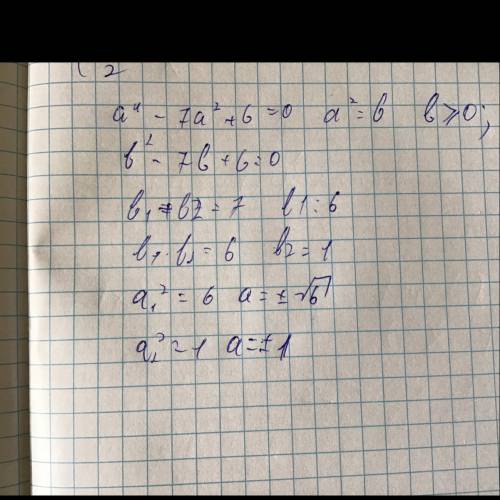 ( 2
a⁴ - 7a² + 6 = 0 a² = b b ≥ 0;
b² - 7b + 6 = 0
b₁ + b2 = 7 b1 = 6
b₁ · b₂ = 6 b₂ = 1
a₁² = 6 a = ± √6
a₂² = 1 a = ± 1